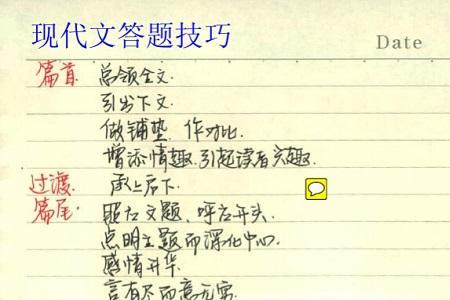 现代文答题技巧
Date
篇首 总领全文.
引出下文
做铺垫. 作对比.
增添情趣.引起读者兴趣.
过渡. 承上启下.
篇尾. 照应文题、呼应开头.
点明主题而深化中心.
感情升华.
言有尽而意无穷.